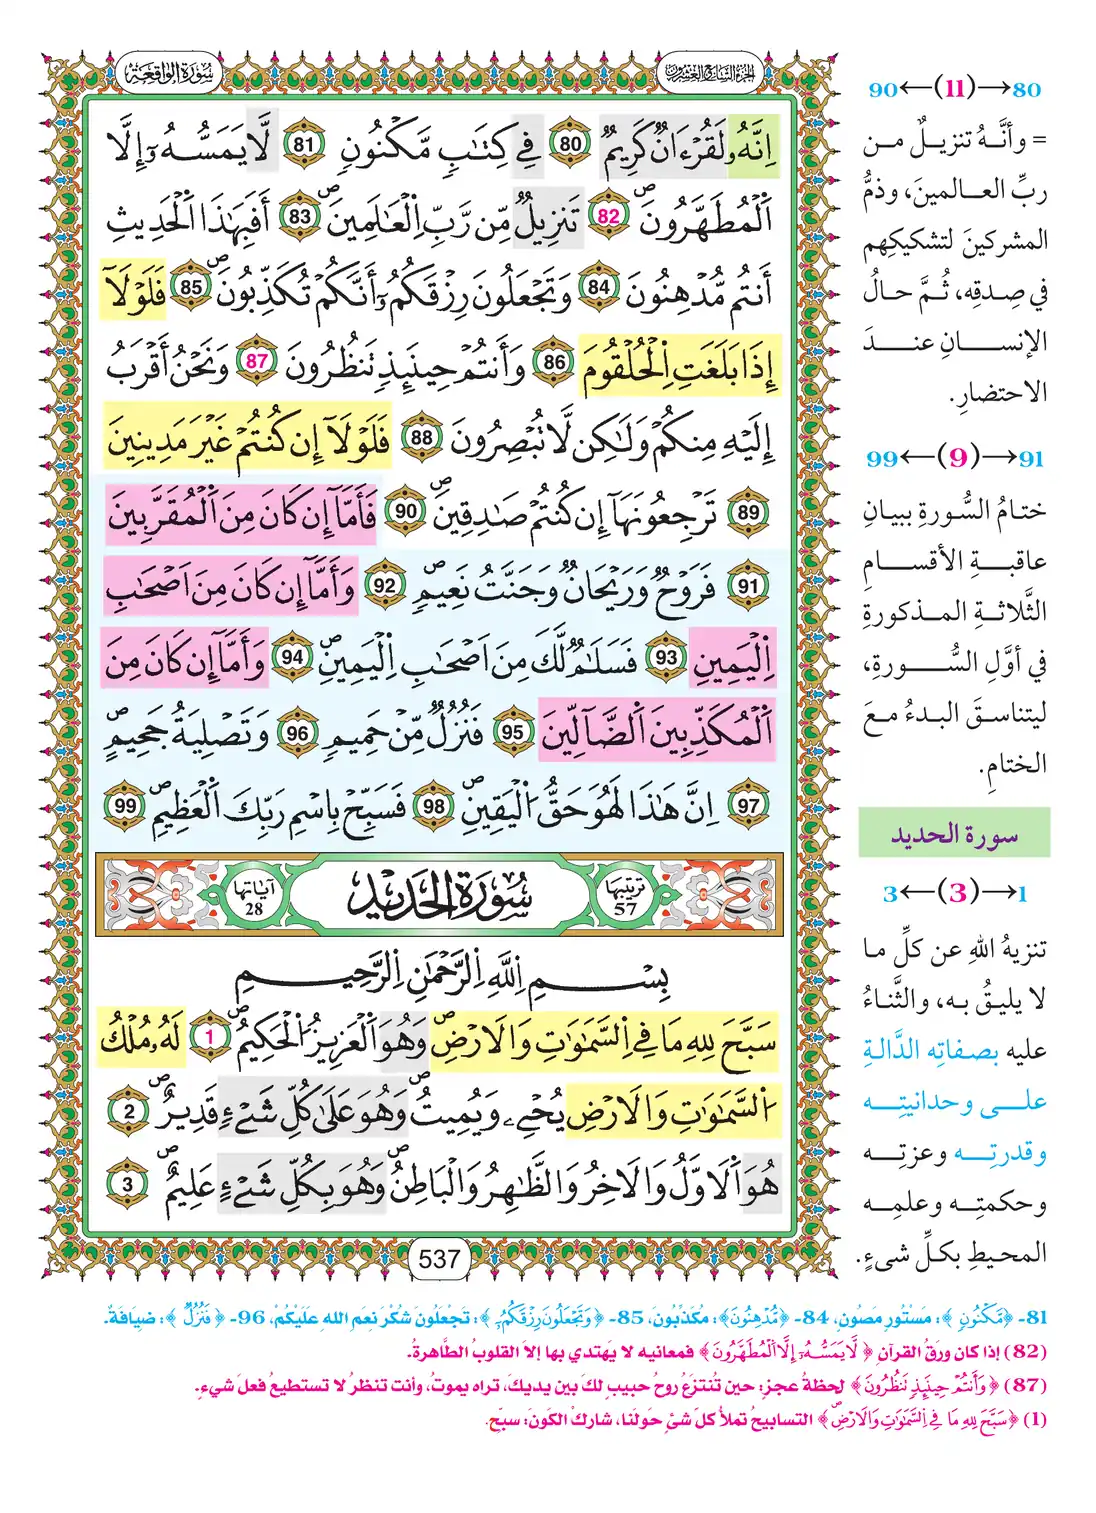 الجزء السابع والعشرون
سورة الواقعة
إِنَّهُۥ لَقُرْءَانٌ كَرِيمٌ 80 فِي كِتَٰبٍ مَّكْنُونٍ 81 لَّا يَمَسُّهُۥٓ إِلَّا
اَ۬لْمُطَهَّرُونَۖ 82 تَنزِيلٌ مِّن رَّبِّ اِ۬لْعَٰلَمِينَۖ 83 أَفَبِهَٰذَا اَ۬لْحَدِيثِ
أَنتُم مُّدْهِنُونَ 84 وَتَجْعَلُونَ رِزْقَكُمُۥٓ أَنَّكُمْ تُكَذِّبُونَۖ 85 فَلَوْلَآ
إِذَا بَلَغَتِ اِ۬لْحُلْقُومَ 86 وَأَنتُمْ حِينَئِذٍ تَنظُرُونَ 87 وَنَحْنُ أَقْرَبُ
إِلَيْهِ مِنكُمْ وَلَٰكِن لَّا تُبْصِرُونَ 88 فَلَوْلَآ إِن كُنتُمْ غَيْرَ مَدِينِينَ
89 تَرْجِعُونَهَآ إِن كُنتُمْ صَٰدِقِينَۖ 90 فَأَمَّآ إِن كَانَ مِنَ اَ۬لْمُقَرَّبِينَ
91 فَرَوْحٌ وَرَيْحَانٌ وَجَنَّتُ نَعِيمٍۖ 92 وَأَمَّآ إِن كَانَ مِنَ اَصْحَٰبِ
اِ۬لْيَمِينِ 93 فَسَلَٰمٌ لَّكَ مِنَ اَصْحَٰبِ اِ۬لْيَمِينِۖ 94 وَأَمَّآ إِن كَانَ مِنَ
اَ۬لْمُكَذِّبِينَ اَ۬لضَّآلِّينَ 95 فَنُزُلٌ مِّنْ حَمِيمٍ 96 وَتَصْلِيَةُ جَحِيمٍۖ
97 اِنَّ هَٰذَا لَهُوَ حَقُّ اُ۬لْيَقِينِۖ 98 فَسَبِّحْ بِاسْمِ رَبِّكَ اَ۬لْعَظِيمِۖ 99
ترتيبها 57
سورة الحديد
آياتها 28
بِسْمِ اِ۬للَّهِ اِ۬لرَّحْمَٰنِ اِ۬لرَّحِيمِ
سَبَّحَ لِلهِ مَا فِي اِ۬لسَّمَٰوَٰتِ وَالَارْضِۖ وَهُوَ اَ۬لْعَزِيزُ اُ۬لْحَكِيمُۖ 1 لَهُۥ مُلْكُ
اُ۬لسَّمَٰوَٰتِ وَالَارْضِ يُحْيِۦ وَيُمِيتُۖ وَهُوَ عَلَىٰ كُلِّ شَےْءٍ قَدِيرٌۖ 2
هُوَ اَ۬لَاوَّلُ وَالَاخِرُ وَالظَّٰهِرُ وَالْبَاطِنُۖ وَهُوَ بِكُلِّ شَےْءٍ عَلِيمٌۖ 3
537
80→(11)←90
= وأنَّهُ تنزيلٌ من
ربِّ العالمينَ، وذمُّ
المشركينَ لتشكيكِهم
في صِدقِه، ثُمَّ حالُ
الإنسانِ عندَ
الاحتضارِ.
91→(9)←99
ختامُ السُّورةِ ببيانِ
عاقبةِ الأقسامِ
الثَّلاثةِ المذكورةِ
في أوَّلِ السُّورةِ،
ليتناسقَ البدءُ معَ
الختامِ.
سورة الحديد
1→(3)←3
تنزيهُ اللهِ عن كلِّ ما
لا يليقُ به، والثَّناءُ
عليه بصفاتِه الدَّالةِ
على وحدانيتِه
وقدرتِه وعزتِه
وحكمتِه وعلمِه
المحيطِ بكلِّ شيءٍ.
81- ﴿مَّكْنُونٍ﴾: مَسْتُورٍ مَصُونٍ، 84- ﴿مُّدْهِنُونَ﴾: مُكَذِّبُونَ، 85- ﴿وَتَجْعَلُونَ رِزْقَكُمُۥٓ﴾: تَجْعَلُونَ شُكْرَ نِعَمِ اللهِ عَلَيْكُمْ، 96- ﴿فَنُزُلٌ﴾: ضِيَافَةٌ.
(82) إذا كان ورَقُ القرآنِ ﴿لَّا يَمَسُّهُۥٓ إِلَّا اَ۬لْمُطَهَّرُونَ﴾ فمعانيه لا يهتدي بها إلا القلوبُ الطَّاهرةُ.
(87) ﴿وَأَنتُمْ حِينَئِذٍ تَنظُرُونَ﴾ لحظةُ عجزٍ: حين تُنتزَعُ روحُ حبيبٍ لكَ بين يديكَ، تراه يموتُ، وأنت تنظرُ لا تستطيعُ فعلَ شيءٍ.
(1) ﴿سَبَّحَ لِلهِ مَا فِي اِ۬لسَّمَٰوَٰتِ وَالَارْضِۖ﴾ التسابيحُ تملأُ كلَّ شيْءٍ حَولَنا، شارك الكونَ: سبِّح.